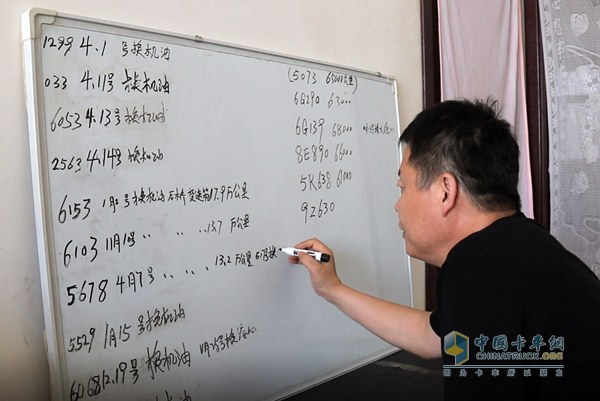 1299 4.1 号换机油
033 4.11号换机油
6053 4.13号换机油
2563 4.14号换机油
6153 1月2号换机油 后桥 变速箱17.9万公里
6103 11月1号 〃 〃 〃 13.7 万公里
5678 4月7号 〃 〃 〃 13.2 万公里
5529 1月15号换机油
6068 12.19号换机油
(5073 65000公里
6G290 63000
6G139 68000
8E890 66000
5R638 61000
9Z630
中国卡车网
CHINATRUCK.ORG
因为卡车所以朋友